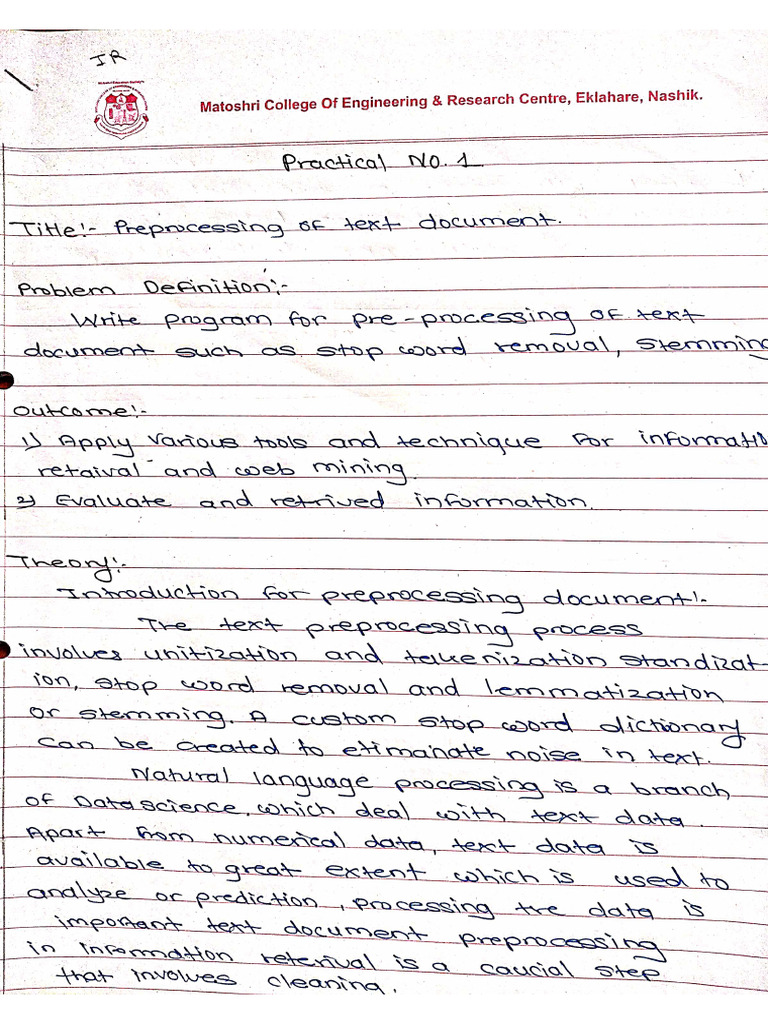 IR
Matoshri College Of Engineering & Research Centre, Eklahare, Nashik.
Practical No. 1
Title:- Preprocessing of text document.
Problem Definition:-
Write program for pre-processing of text
document such as stop word removal, stemming
Outcome:-
1) Apply various tools and technique for informatio
retaival and web mining.
2) Evaluate and retrived information.
Theory:-
Introduction for preprocessing document:-
The text preprocessing process
involves unitization and tokenization standizat-
ion, stop word removal and lemmatization
or stemming. A custom stop word dictionary
can be created to etimanate noise in text.
Natural language processing is a branch
of Datascience, which deal with text data.
Apart from numerical data, text data is
available to great extent which is used to
analyze or prediction, processing the data is
important text document preprocessing
in information reterival is a caucial step
that involves cleaning.